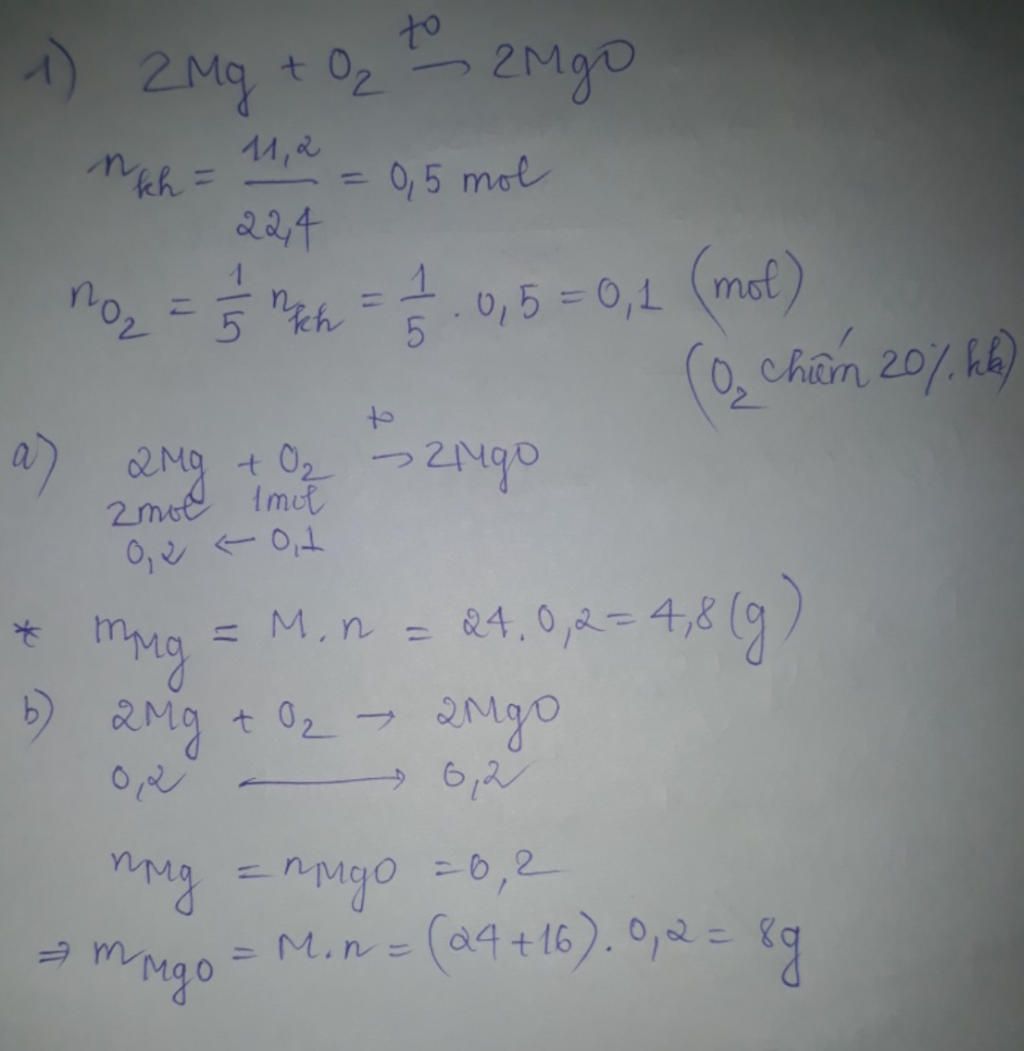 1) 2Mg + O₂ →(t°) 2MgO
n_kh = 11,2/22,4 = 0,5 mol
n_O₂ = 1/5 n_kh = 1/5 . 0,5 = 0,1 (mol)
(O₂ chiếm 20% kk)
a) 2Mg + O₂ →(t°) 2MgO
2mol 1mol
0,2 ← 0,1
* m_Mg = M.n = 24.0,2 = 4,8(g)
b) 2Mg + O₂ → 2MgO
0,2 → 0,2
n_Mg = n_MgO = 0,2
⇒ m_MgO = M.n = (24+16).0,2 = 8g